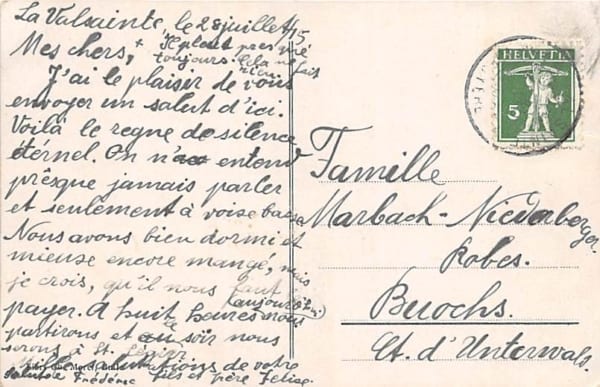 La Valsainte, le 28 juillet 15
Mes chers, + Il pleut presque
toujours. Cela ne fait
rien.
J'ai le plaisir de vous
envoyer un salut d'ici.
Voilà le regne de silence
éternel. On n'a entend
prêsque jamais parler
et seulement à voise basse
Nous avons bien dormi et
mieuse encore mangé, mais
je crois, qu'il nous faut
payer. A huit heures nous
(aujourd'hui)
partirons et ce soir nous
serons à St. Légier.
salutations de votre
fils et père Felise.
Salut de Frédéric
HELVETIA
5
Famille
Marbach-Niederberger.
Robes.
Buochs.
Ct. d'Unterwald